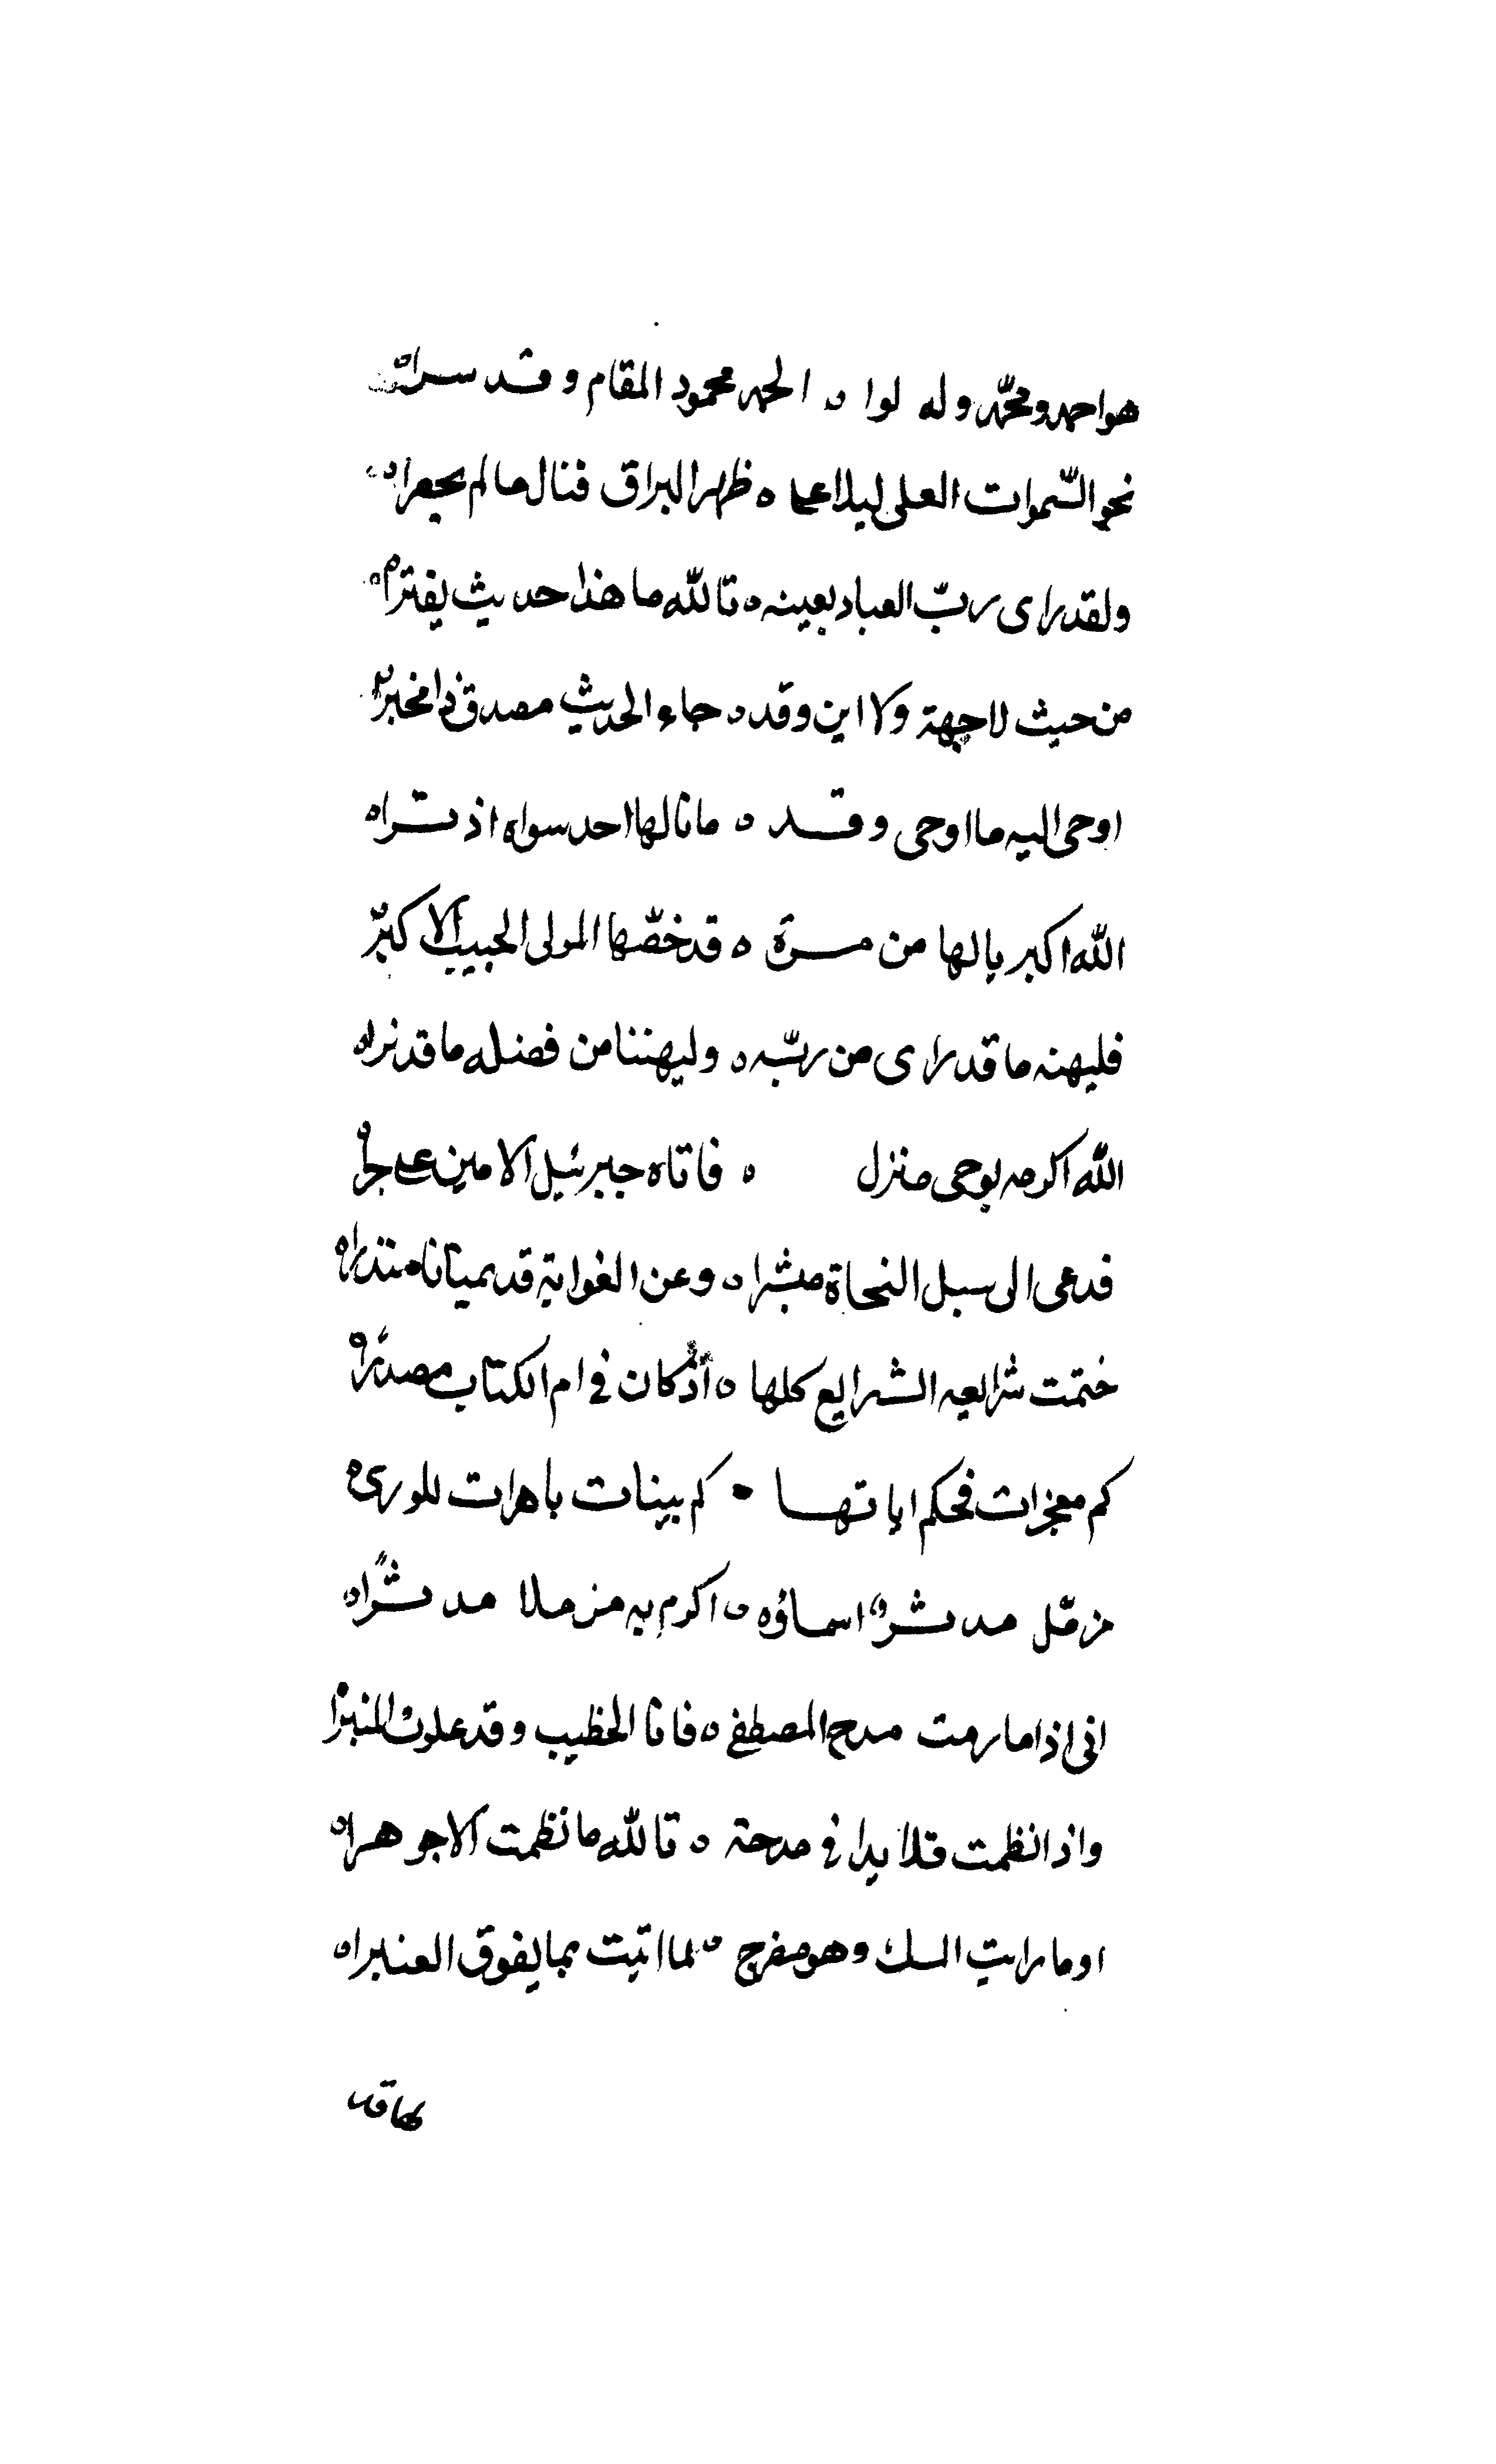 هو احمد ومحمّد وله لوا ه الحمد محمود المقام وقد سرا
نحو السّموات العلى ليلا على ه ظهر البراق فنال ما لم يحصرا ه
ولقد راى ربّ العباد بعينه ه تاللّه ما هذا حديث يفترا ه
من حيث لا جهة ولا اين وقد ه جاء الحديث مصدق ذا مخبرا
اوحى اليه ما اوحى وقد ه ما نالها احد سواه اذ ترا ه
اللّه اكبر يا لها من مرة ه قد خصّها المولى الحبيب الاكبرّ
فليهنه ما قد راى من ربّه ه وليهننا من فضله ما قد نرا ه
اللّه اكرمه بوحى منزل ه فاتاه جبرئيل الامين على حرا
فدعى الى سبل النجاة مبشرا ه وعن الغواية قد منذرا ه
ختمت شرايعه الشرايع كلها ه اذ كان في ام الكتاب مصدرا ه
كم معجزات محكم اياتها ه كم بينات باهرات للورى ه
مزمّل مدثر اسماؤه ه اكرم به مزملا مدثرا ه
انى اذا ما رمت مدح المصطفى ه فانا الخطيب وقد علوت المنبرا
واذا نظمت قلايدا في مدحة ه تاللّه ما نظمت الا جوهرا ه
او ما رايت المسك وهو مفرح ه لما اتيت بما يفوق العنبرا ه